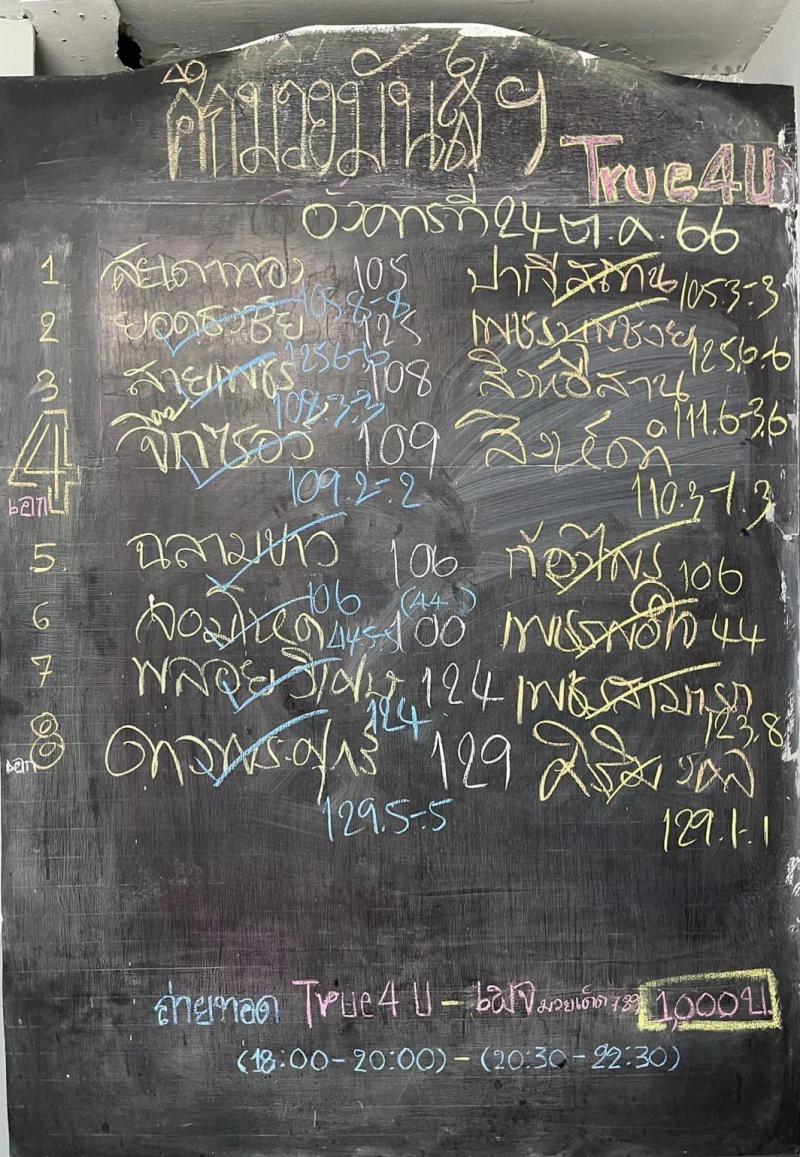 ศึกมวยมันส์ ฯ
True4U
อังคารที่ 24 ต.ค. 66
1 สะเดาทอง 105 ปาก
105.8-.8 105.3-.3
2 ยอดธงชัย 125 เพชร
125.6-.6 125.6-.6
3 สายเพชร 108 สิงห์อีสาน
108.3-.3 111.6-3.6
4 จิ๊กไรอง 109 สิงห์ดำ
เอก 109.2-.2 110.3-1.3
5. ฉลามขาว 106 ก้องไพร 106
106 (44
6 จอมโหด 100 เพชรพยัคฆ์ 44
44.5-.5
7 พลอยวิเศษ 124 เพชรสามารถ
124 123.8
8 129 ศิริมงคล
เอก 129.5-.5 129.1-.1
ถ่ายทอด True4U - เพจ มวยเด็ด 789 1,000บ
(18:00-20:00)-(20:30-22:30)